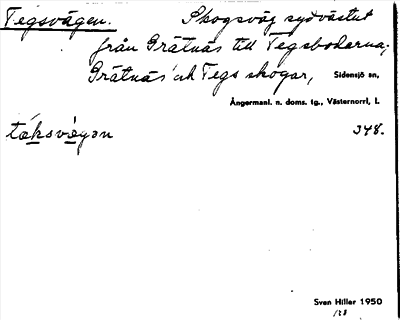 Tegsvägen. Skogsväg sydvästut
från Grätnäs till Tegsbodarna,
Grätnäs och Tegs skogar, Sidensjö sn,
Ångermanl. n. doms. tg., Västernorrl, l.
348.
Sven Hiller 1950